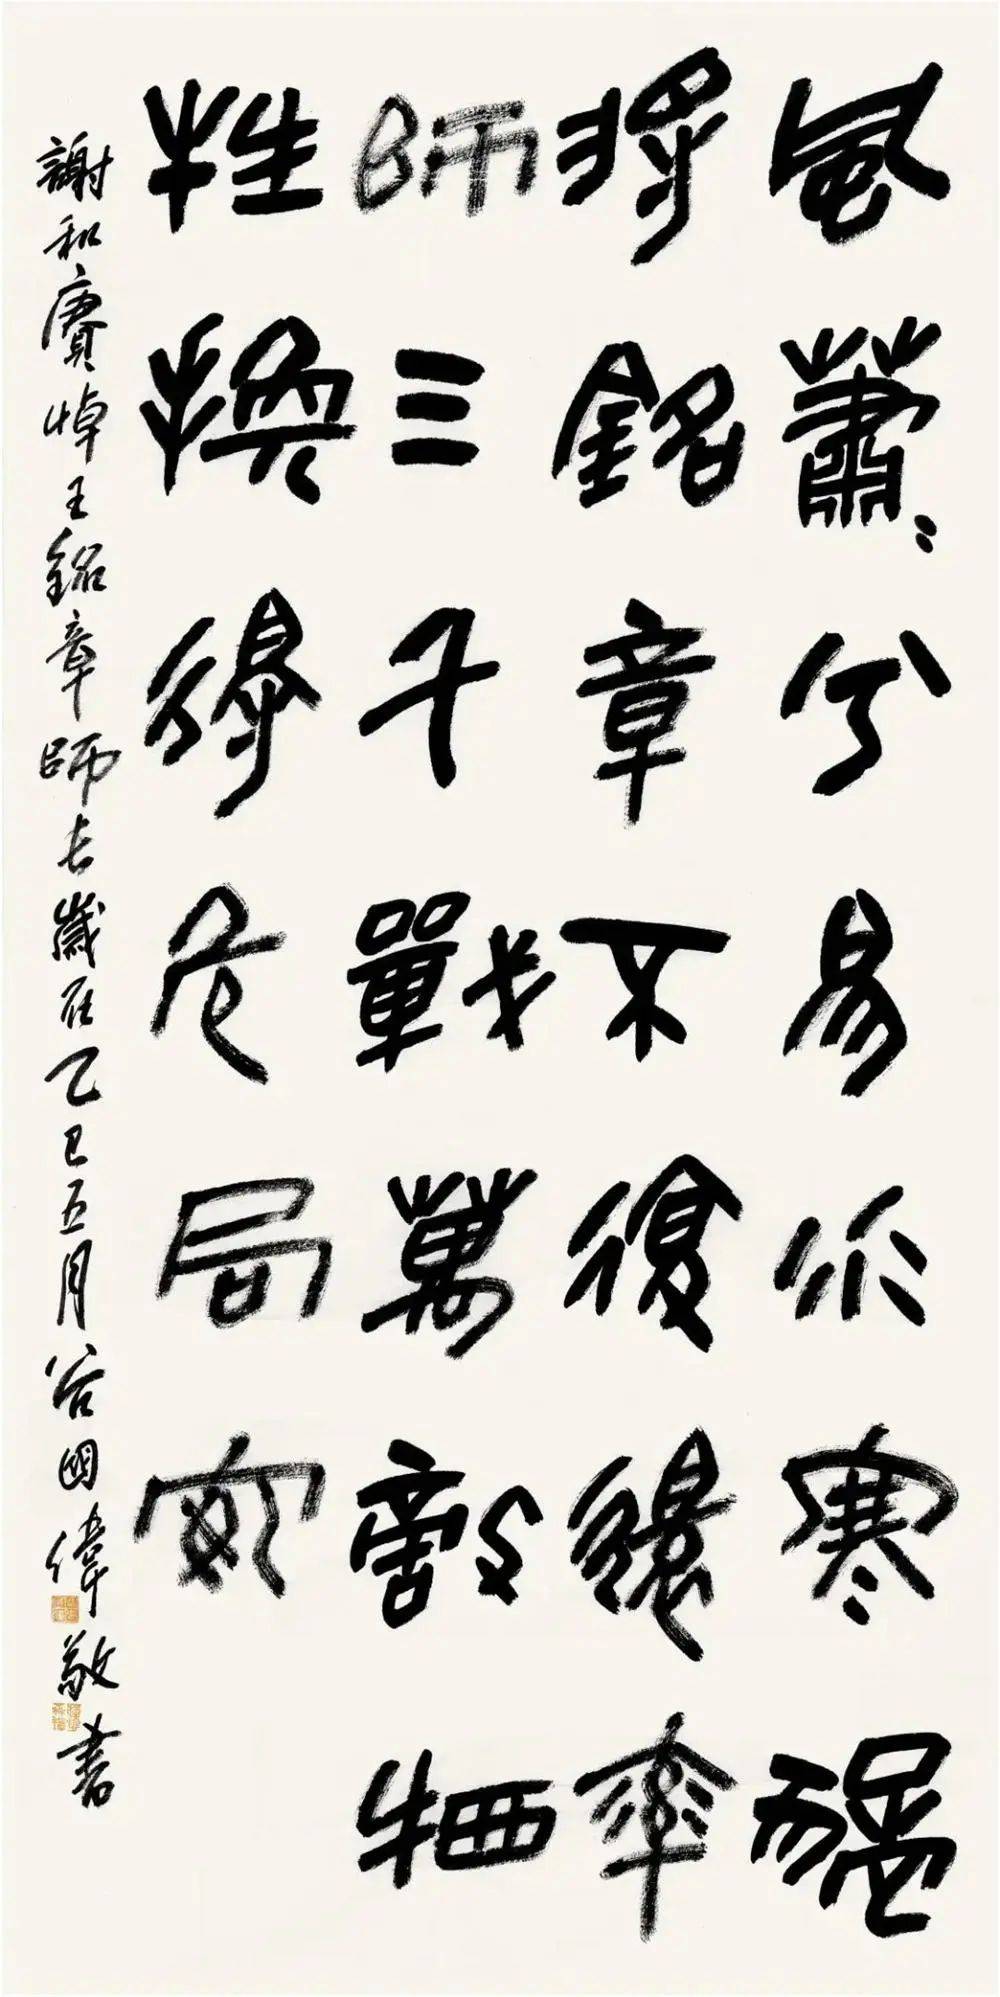 風蕭〻兮易水寒
將銘章不復還率
師三千戰萬敵牺
牲換得危局安
謝和賡悼王銘章師長歲在乙巳五月谷國偉敬書